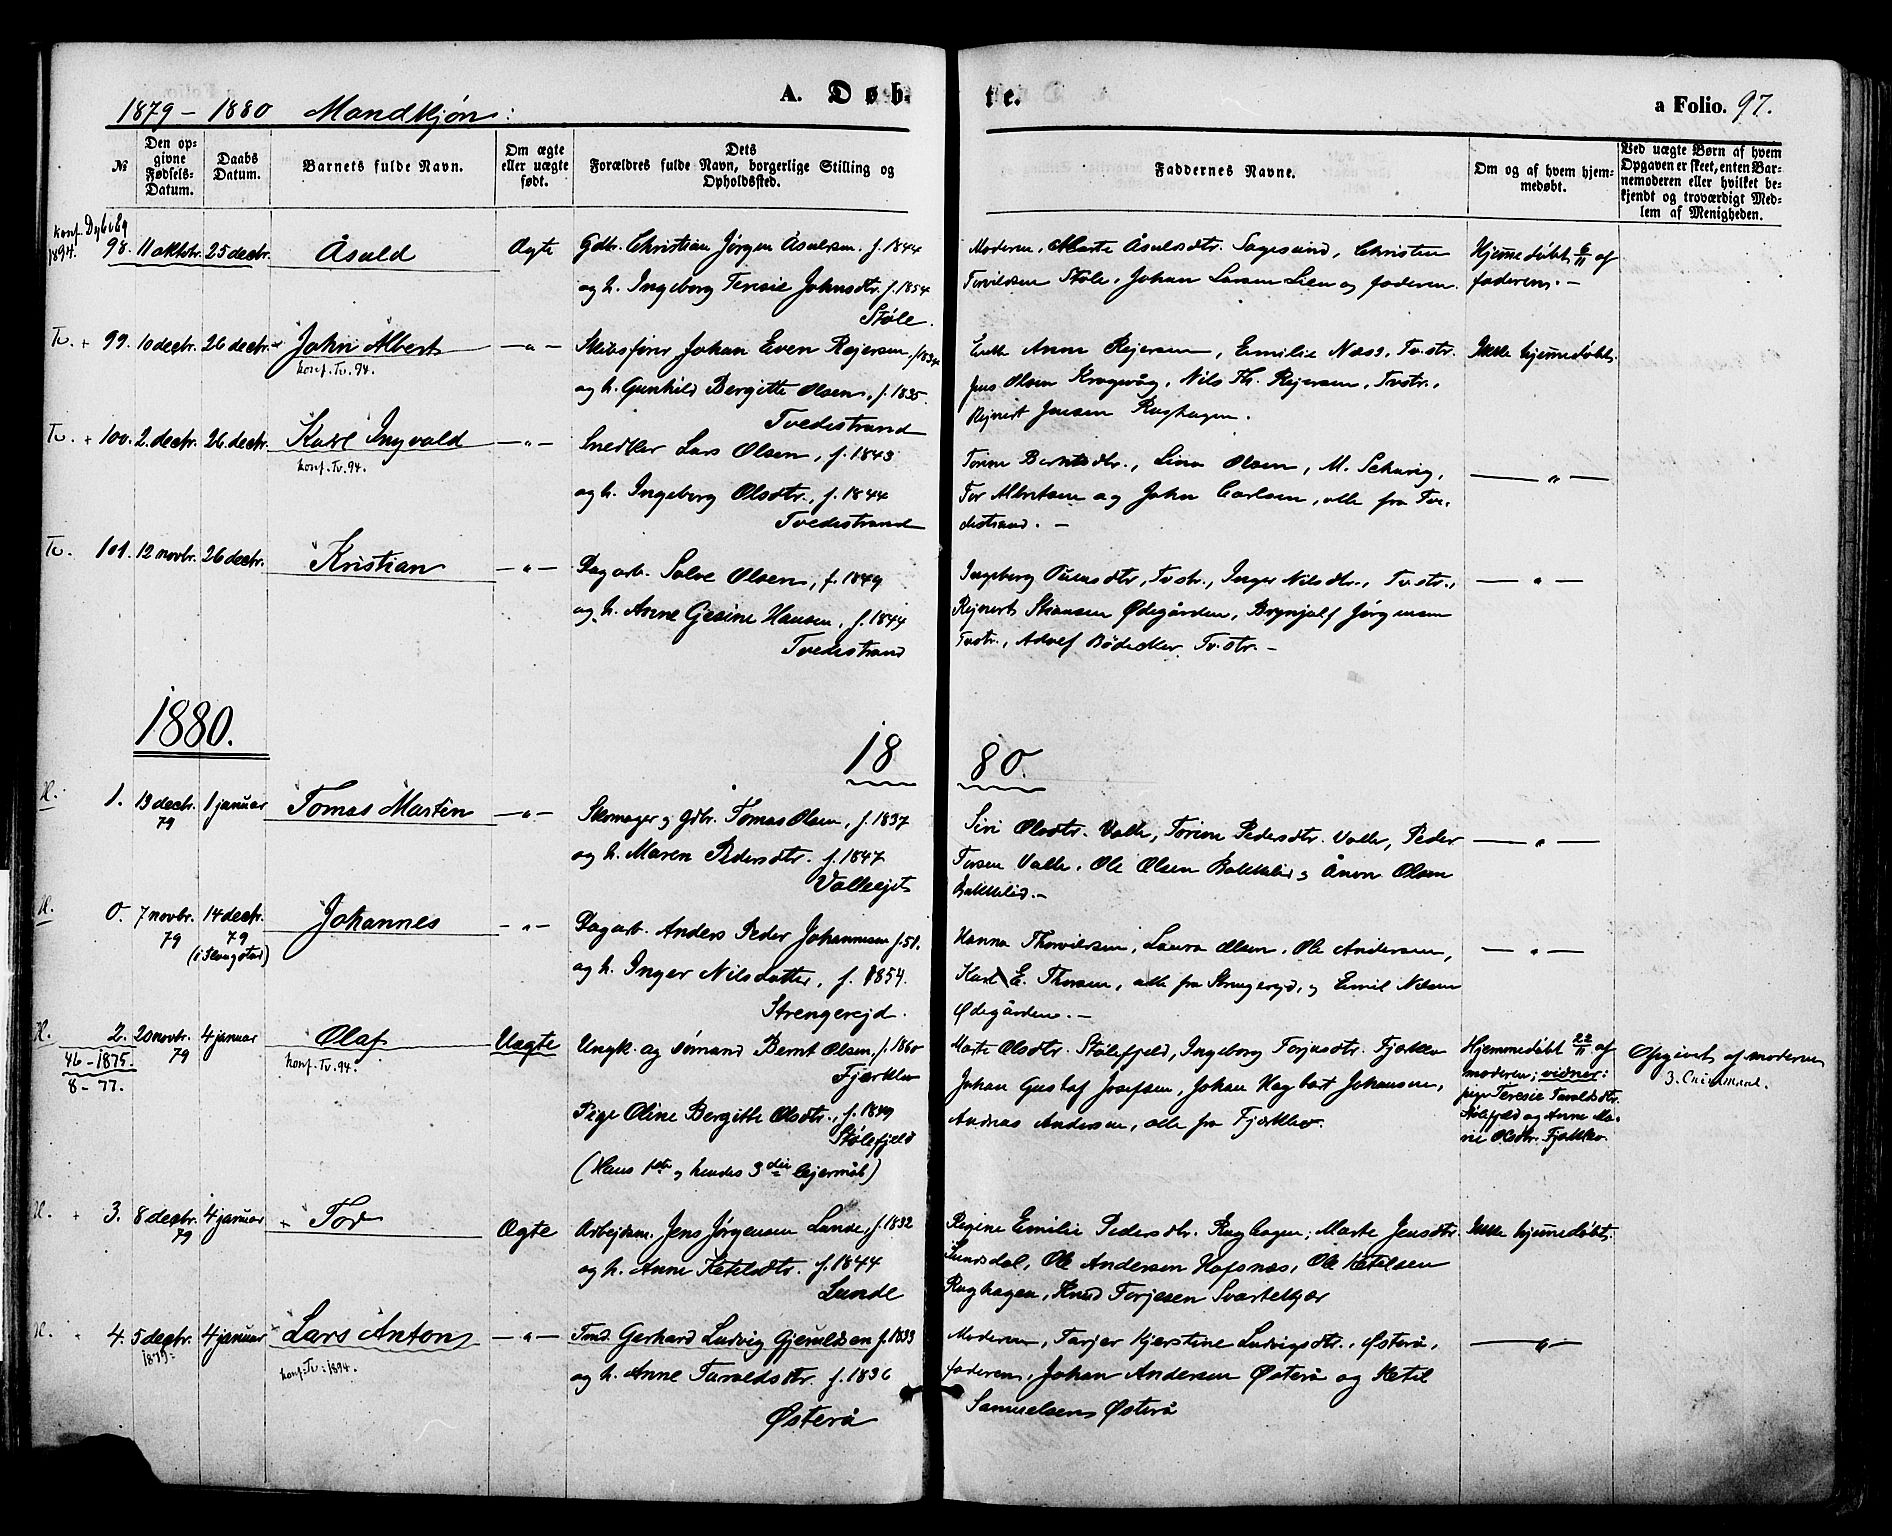 1879 – 1880 Mandkjøn: A. Døb- te. a Folio. 97.
№
Den op-
givne
Fødsels-
Datum.
Daabs
Datum.
Barnets fulde Navn.
Om ægte
eller uægte
født.
Dets
Forældres fulde Navn, borgerlige Stilling og
Opholdssted.
Faddernes Navne.
Om og af hvem hjem-
medøbt.
Ved uægte Børn af hvem
Opgaven er skeet, enten Bar-
nemoderen eller hvilket be-
kjendt og troværdigt Med-
lem af Menigheden.
konf. Dybvåg
1894.
98. 11 oktobr. 25 decbr. Åsuld Ægte Gdbr. Christian Jørgen Åsulsen f. 1844
og h. Ingeborg Teresie Johnsdtr. f. 1854
Støle.
Moderen, Marte Åsulsdtr. Sagesund, Christen
Torvildsen Støle, Johan Larsen Lien og faderen.
Hjemmedøbt 6/11 af
faderen. –
Tv. + 99. 10 decbr. 26 decbr. John Albert –"– Skibsfører Johan Even Rejersen, f. 1834
konf. Tv. 94.
og h. Gunhild Bergitte Olsen, f. 1835.
Tvedestrand
Enke Anne Rejersen, Emilie Næss, Tv.str.
Jens Olsen Kragevåg, Nils Th. Rejersen, Tvstr.,
Rejnert Jensen Raghagen.
Ikke hjemmedøbt.
Tv. + 100. 2. decbr. 26. decbr. Karl Ingvald –"– Snedker Lars Olsen, f. 1843
konf. Tv. 94.
og h. Ingeborg Olsdtr., f. 1844
Tvedestrand
Torine Berntsdtr., Lina Olsen, M. Schavig,
Tor Albretsen og John Carlsen, alle fra Tve-
destrand. –
–"–
Tv. 101. 12 novbr. 26 decbr. Kristian –"– Dagarb. Salve Olsen, f. 1849
og h. Anne Gesine Hansen, f. 1844
Tvedestrand
Ingeborg Olsdtr, Tvstr., Inger Nilsdtr., Tv.str.,
Rejnert Hansen Ødegården, Brynjulf Jørgensen
Tvstr., Adolf Bødekker Tv.str. –
–"–
1880.
18 80.
H. 1. 13 decbr. 1 januar Tomas Martin –"– Skomager og gdbr. Tomas Olsen, f. 1837
79
og h. Maren Pedersdtr. f. 1847
Valleejet
Siri Olsdtr. Valle, Torine Pedersdtr. Valle, Peder
Torsen Valle, Ole Olsen Bakkelid og Ånon Olsen
Bakkelid. –
–"–
H. 0. 7 novbr. 14 decbr. Johannes –"– Dagarb. Anders Peder Johannesen f. 51.
79 79
og h. Inger Nilsdatter, f. 1854.
Strengerejd.
Hanna Thorvilsen, Laura Olsen, Ole Andersen,
Karl E. Thorsen, alle fra Strengerejd, og Emil Nilsen
Ødegården. –
–"–
H. 2. 20 novbr. 4 januar Olaf Uægte Ungk. og sømand Bernt Olsen, f. 1860
46 – 1875. 79 konf. Tv. 94.
8 – 77.
Fjærklev
Pige Oline Bergitte Olsdtr., f. 1849
Stølefjeld
(Hans 1ste og hendes 3die lejermål)
Marte Olsdtr. Stølefjeld, Ingeborg Torjusdtr. Fjærklev
Johan Gustaf Josefsen, Johan Hagbart Johansen,
Andreas Andersen, alle fra Fjærklev.
Hjemmedøbt 22/11 af
moderen; vidner:
pige Teresie Taraldsdtr.
Stølefjeld og Anne Ma-
rie Olsdtr. Fjærklev.
Opgivet af moderen
H. + 3. 8 decbr. 4 januar Tor Ægte Arbejdsm. Jens Jørgensen Lunde, f. 1832
79
og h. Anne Ketelsdtr. f. 1844
Lunde
Regine Emilie Pedersdtr. Raghagen, Marte Jensdtr.
Sundsdal, Ole Andersen Hofsnæs, Ole Ketilsen
Raghagen, Knud Torjesen Svartekjær
Ikke hjemmedøbt.
H. 4. 5 decbr. 4 januar Lars Anton –"– Tmd. Gerhard Ludvig Gjeruldsen f. 1833
1879. konf. Tv. 1894.
og h. Anne Taraldsdtr. f. 1836
Østerå
Moderen, Tarjer Kjerstine Ludvigsdtr., Østerå,
faderen, Johan Andersen Østerå og Ketil
Samuelsen Østerå
–"–